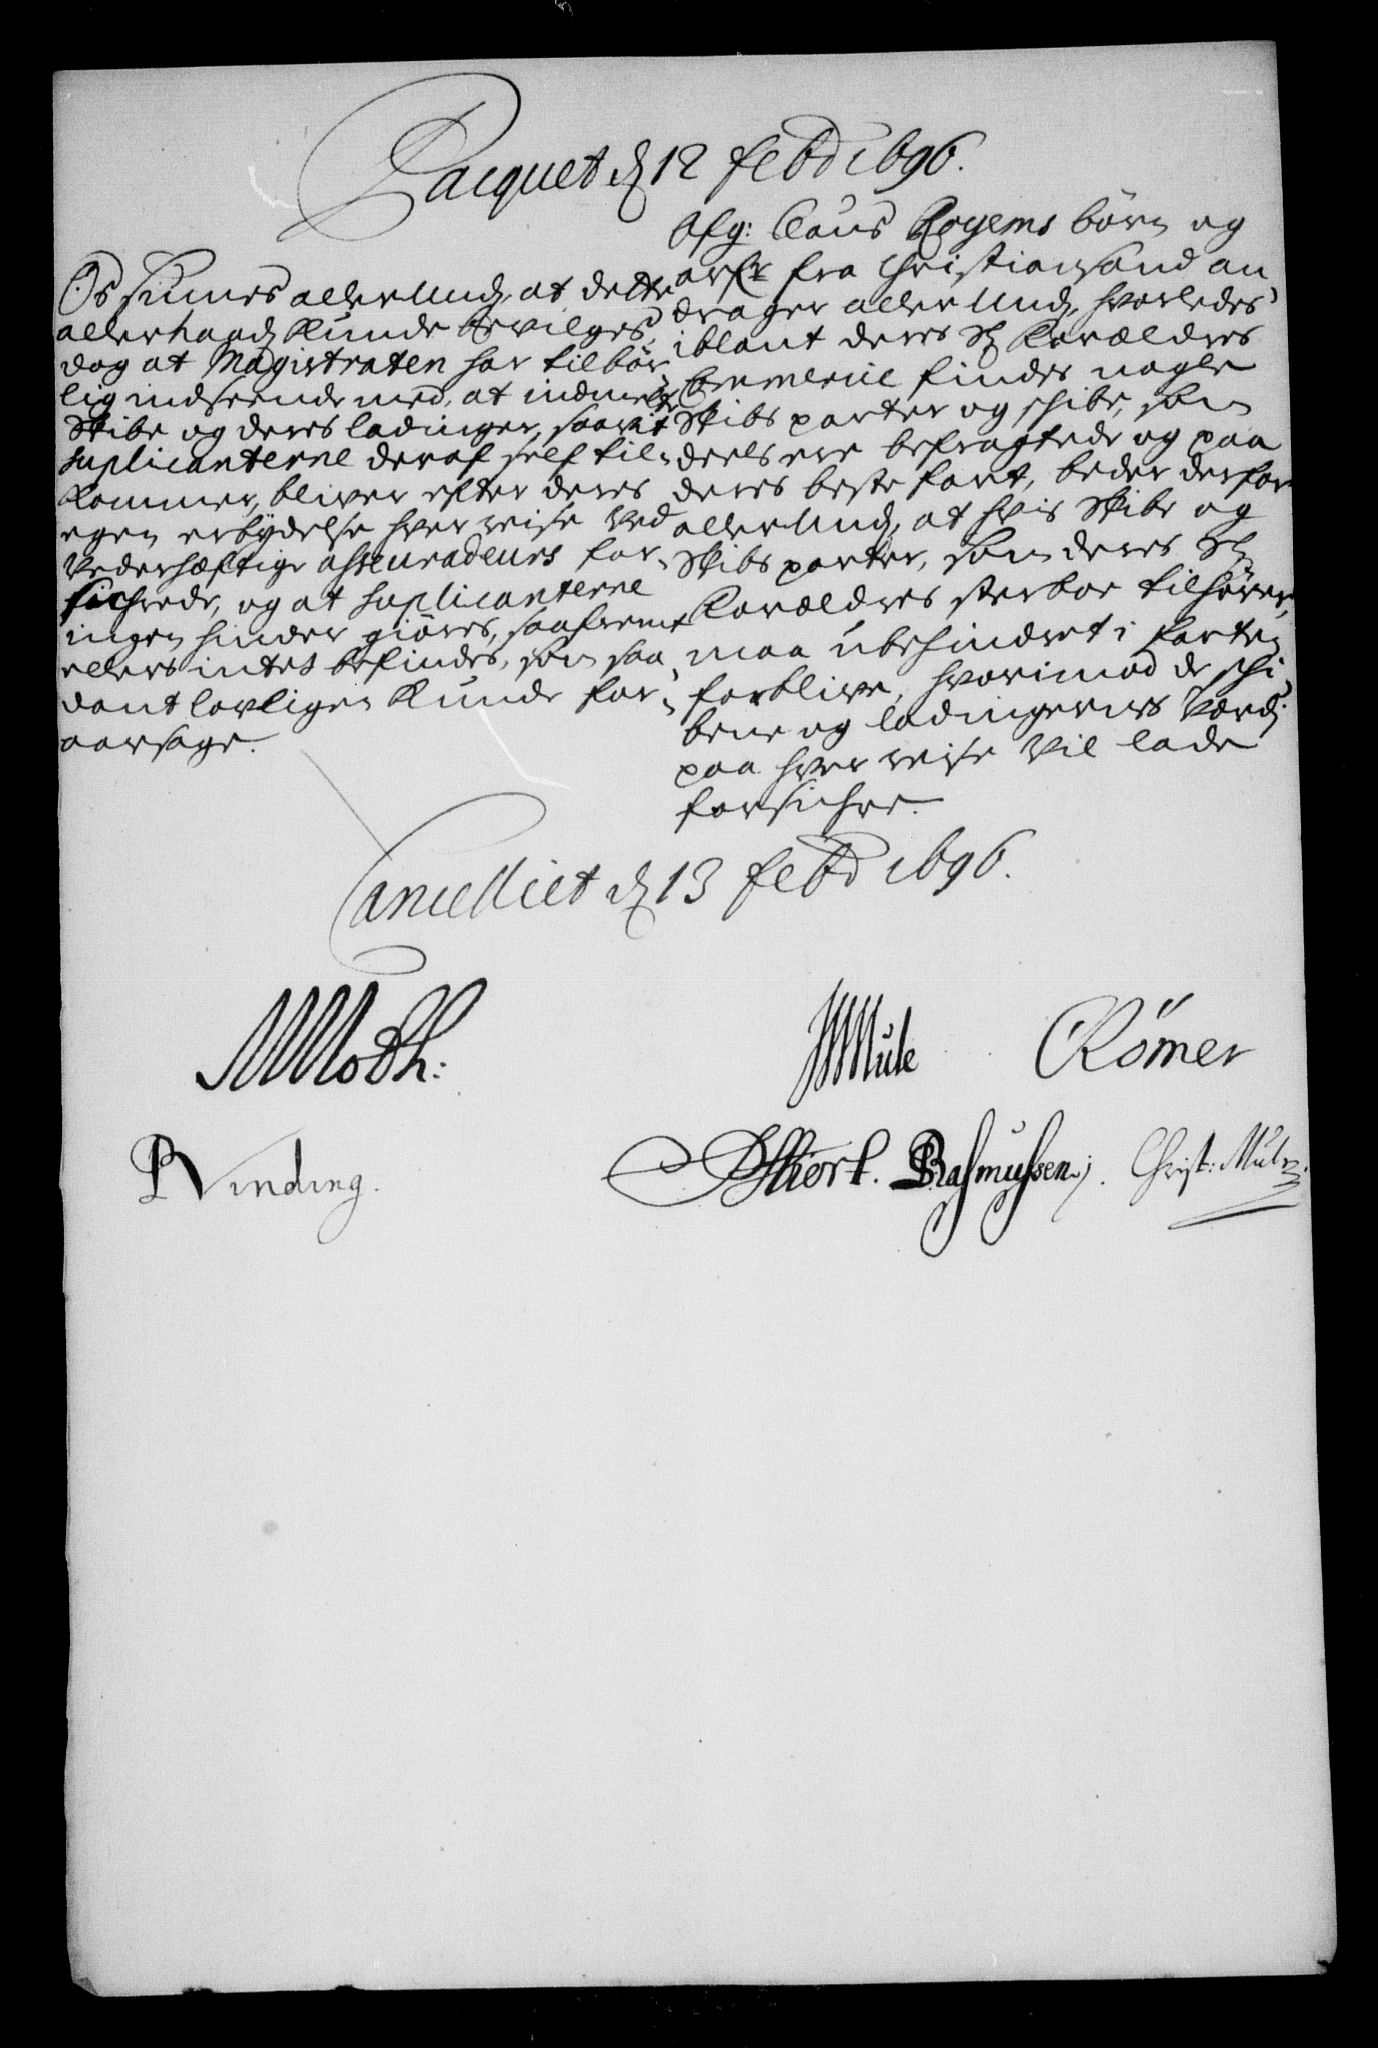 Pacquet d 12 Febr 1696.
Afg: Claus Rogems børn og
arf: fra Christiansand an
drager allerund, hvorledes
iblant deres Sl Forældres
Commercie findes nogle
Skibs parter og schibe, som
deels ere befragtede og paa
deres beste fart, beder derfor
allerund, at hvis Skibe og
Skibs parter, som deres Sl
Forældres sterboe tilhører,
maa ubehindret i farten
forblive, hvorimod de schi,
bene og ladingernes Værdj
paa hver reise vil lade
forsichre.
Os siunes allerund, at dette
allernaad Kunde bevilges,
dog at Magistraten har tilbør,
lig indseende med, at indmelte
Skibe og deres ladinger, saavit
suplicanterne deraf self til,
Kommer, bliver efter deres
egen erbydelse hver reise ved
Vederhæftige assecuradeurs for,
sichrede, og at suplicanterne
ingen hinder giøres, saafremt
ellers intet befindes, som saa,
dant lovligen Kunde for,
aarsage.
Cancelliet d 13 Febr 1696.
MMoth:
Mule
CRömer
PVinding.
Hiort.
Rasmussen.
Christ: Mule.